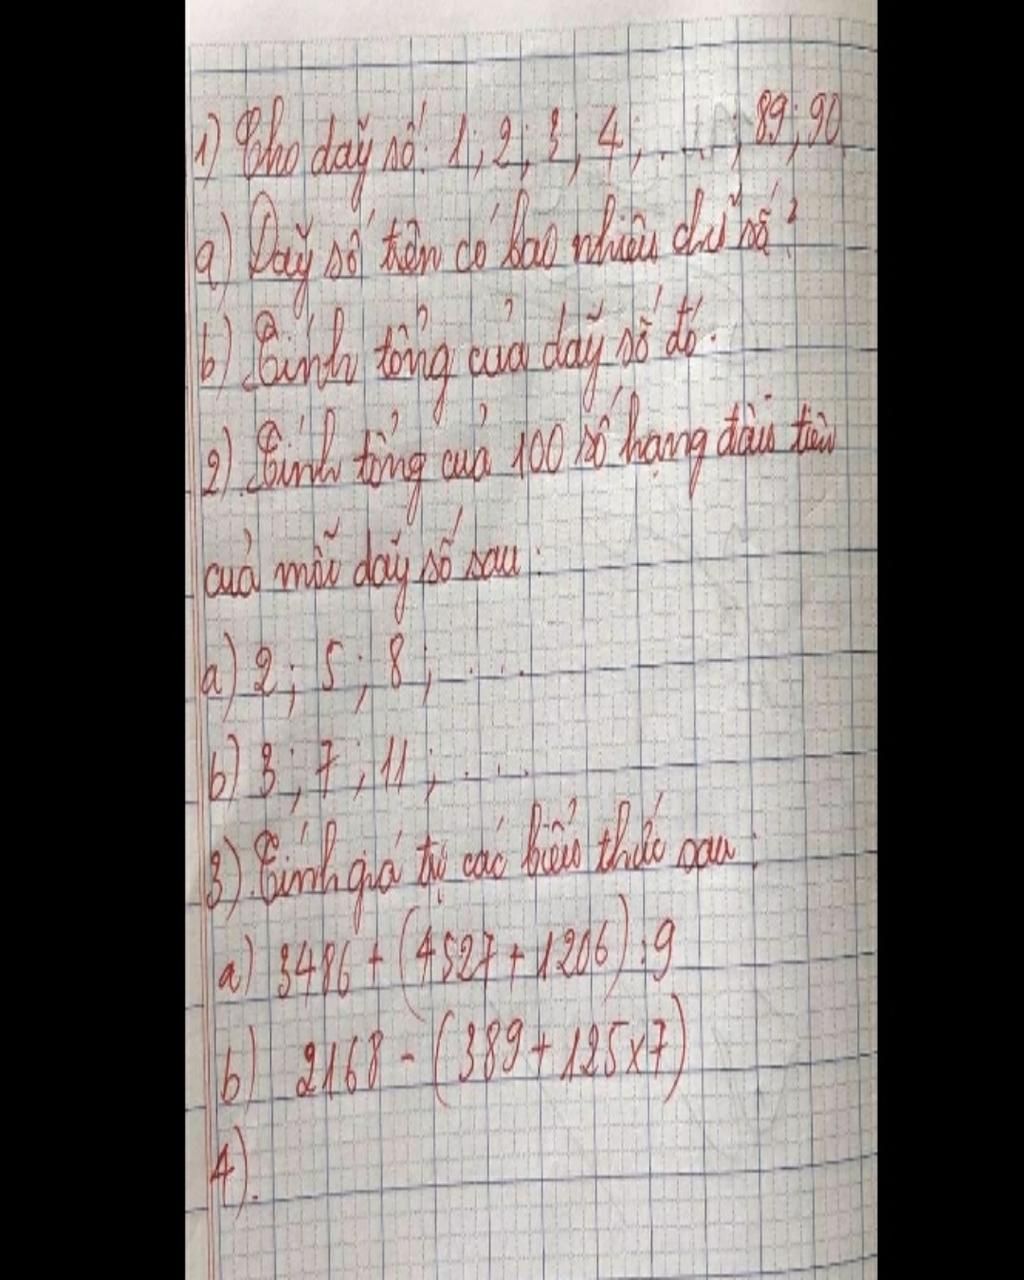 1) Cho dãy số: 1; 2; 3; 4; ......; 89; 90
a) Dãy số trên có bao nhiêu chữ số?
b) Tính tổng của dãy số đó.
2). Tính tổng của 100 số hạng đầu tiên
của mỗi dãy số sau:
a) 2; 5; 8; ....
b) 3; 7; 11; ....
3). Tính giá trị các biểu thức sau:
a) 3486 + (4527 + 1206) : 9
b) 2168 - (389 + 125 x 7)
4).